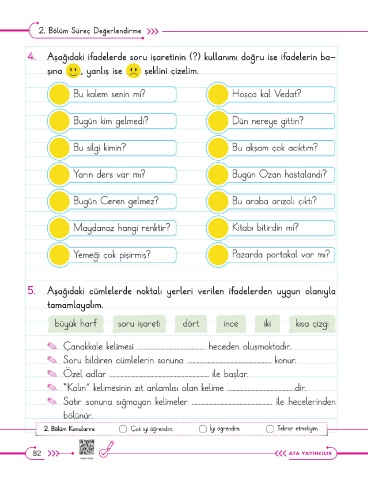 2. Bölüm Süreç Değerlendirme
4. Aşağıdaki ifadelerde soru işaretinin (?) kullanımı doğru ise ifadelerin ba-
şına , yanlış ise şeklini çizelim.
Bu kalem senin mi?
Hoşça kal Vedat?
Bugün kim gelmedi?
Dün nereye gittin?
Bu silgi kimin?
Bu akşam çok acıktım?
Yarın ders var mı?
Bugün Ozan hastalandı?
Bugün Ceren gelmez?
Bu araba arızalı çıktı?
Maydanoz hangi renktir?
Kitabı bitirdin mi?
Yemeği çok pişirmiş?
Pazarda portakal var mı?
5. Aşağıdaki cümlelerde noktalı yerleri verilen ifadelerden uygun olanıyla
tamamlayalım.
büyük harf soru işareti dört ince iki kısa çizgi
Çanakkale kelimesi ........................ heceden oluşmaktadır.
Soru bildiren cümlelerin sonuna ........................ konur.
Özel adlar ........................ ile başlar.
“Kalın” kelimesinin zıt anlamlısı olan kelime ........................dir.
Satır sonuna sığmayan kelimeler ........................ ile hecelerinden
bölünür.
2. Bölüm Konularını: Çok iyi öğrendim. İyi öğrendim. Tekrar etmeliyim.
82
ATA YAYINCILIK